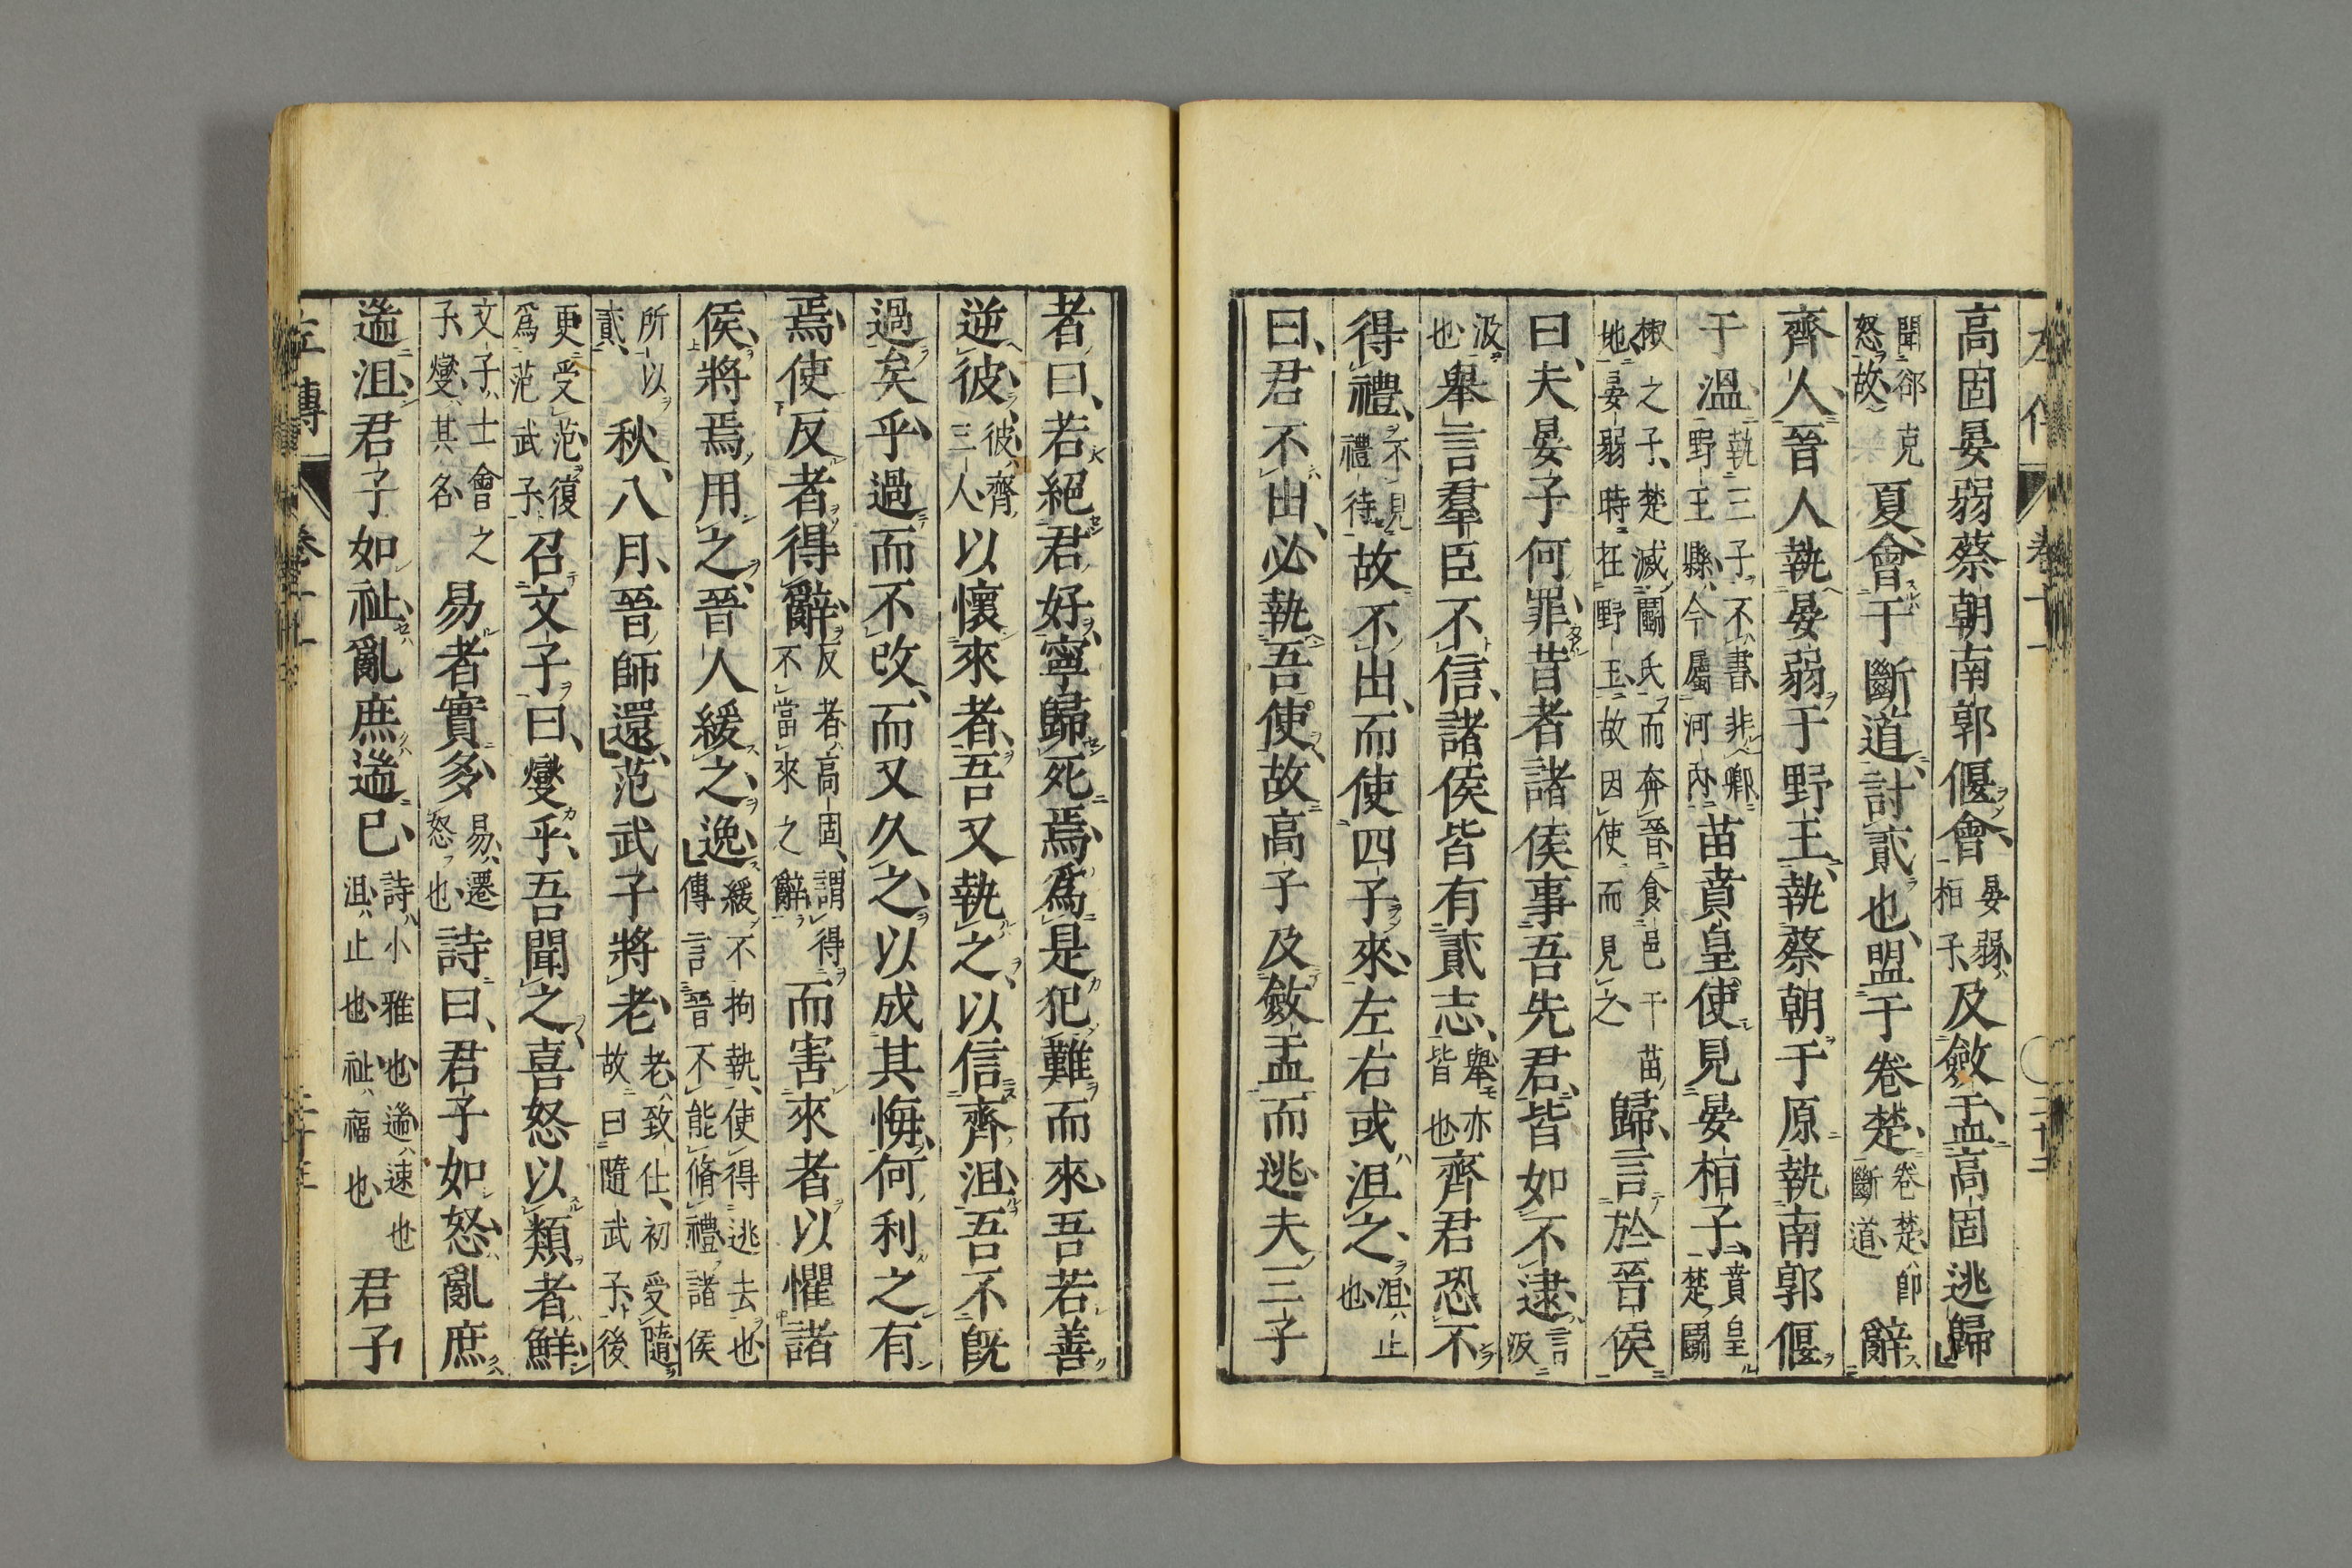 高固晏弱蔡朝南郭偃會晏弱桓子及斂盂高固逃歸
聞郤克怒故夏會于斷道討貳也盟于卷楚卷楚即斷道辭
齊人晉人執晏弱于野王執蔡朝于原執南郭偃
于溫執三子不書非卿野王縣今屬河內苗賁皇使見晏桓子賁皇楚鬭
椒之子楚滅鬭氏而奔晉食邑于苗地晏弱時在野王故因使而見之歸言於晉侯
曰夫晏子何罪昔者諸侯事吾先君皆如不逮言汲
汲也舉言羣臣不信諸侯皆有貳志舉亦皆也齊君恐不
得禮不見禮待故不出而使四子來左右或沮之沮止也
曰君不出必執吾使故高子及斂盂而逃夫三子
者曰若絕君好寧歸死焉爲是犯難而來吾若善
逆彼彼齊三人以懷來者吾又執之以信齊沮吾不旣
過矣乎過而不改而又久之以成其悔何利之有
焉使反者得辭反者高固謂得不當來之辭而害來者以懼諸
侯將焉用之晉人緩之逸緩不拘執使得逃去也傳言晉不能脩禮諸侯
所以貳秋八月晉師還范武子將老老致仕初受隨故曰隨武子後
更受范復爲范武子召文子曰燮乎吾聞之喜怒以類者鮮
文子士會之子燮其名易者實多易遷怒也詩曰君子如怒亂庶
遄沮君子如祉亂庶遄已詩小雅也遄速也沮止也祉福也君子
左傳 卷十一